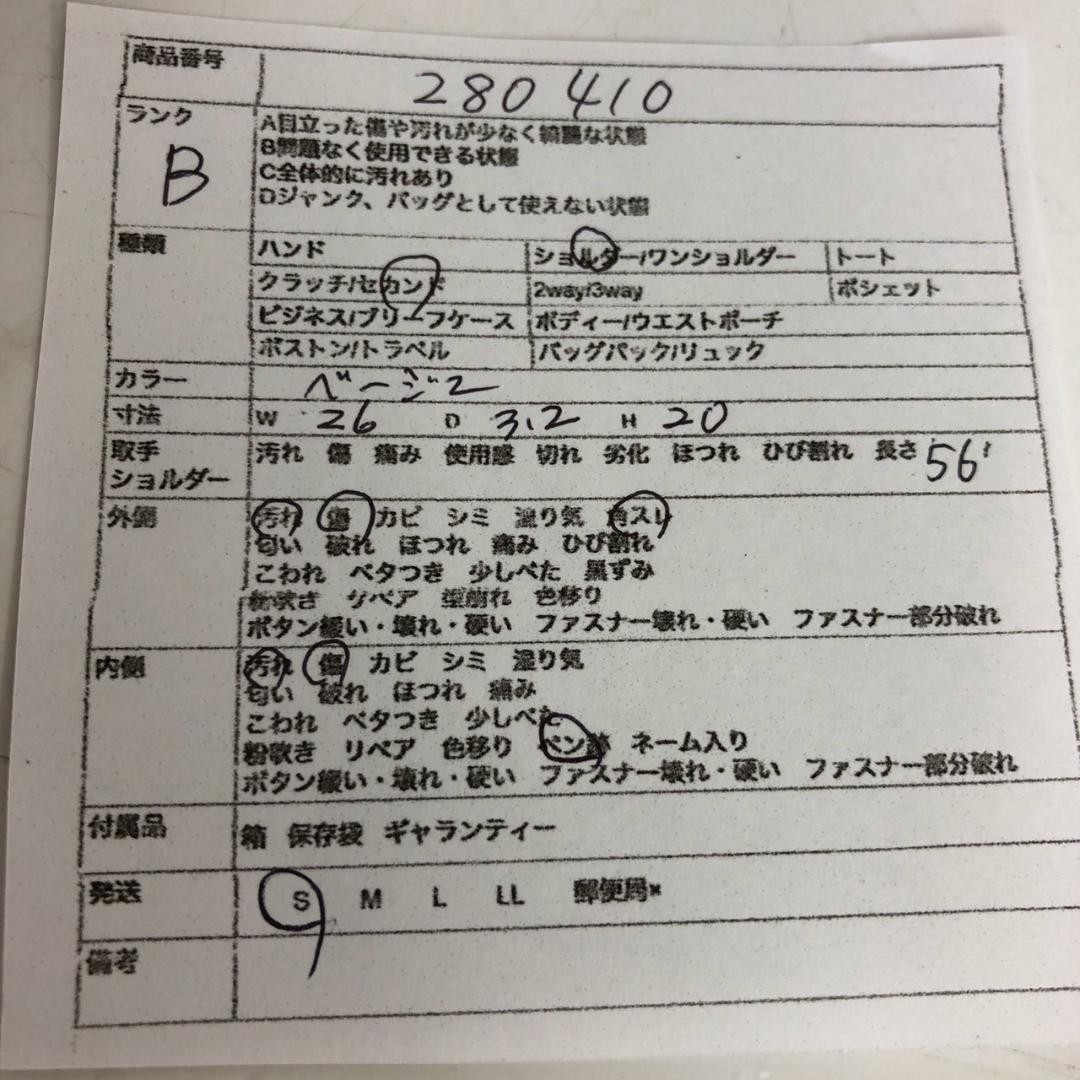 商品番号 280410
ランク B
A目立った傷や汚れが少なく綺麗な状態
B問題なく使用できる状態
C全体的に汚れあり
Dジャンク、バッグとして使えない状態
種類 ハンド ショルダー/ワンショルダー トート
クラッチ/セカンド 2way/3way ポシェット
ビジネス/ブリーフケース ボディー/ウエストポーチ
ボストン/トラベル バッグパック/リュック
カラー ベージ2
寸法 W 26 D 3.2 H 20
取手 汚れ 傷 痛み 使用感 切れ 劣化 ほつれ ひび割れ 長さ 56
ショルダー
外側 汚れ 傷 カビ シミ 湿り気 角スレ
匂い 破れ ほつれ 痛み ひび割れ
こわれ ベタつき 少しべた 黒ずみ
粉吹き リペア 型崩れ 色移り
ボタン緩い・壊れ・硬い ファスナー壊れ・硬い ファスナー部分破れ
内側 汚れ 傷 カビ シミ 湿り気
匂い 破れ ほつれ 痛み
こわれ ベタつき 少しべた
粉吹き リペア 色移り ペン跡 ネーム入り
ボタン緩い・壊れ・硬い ファスナー壊れ・硬い ファスナー部分破れ
付属品 箱 保存袋 ギャランティー
発送 S M L LL 郵便局×
備考